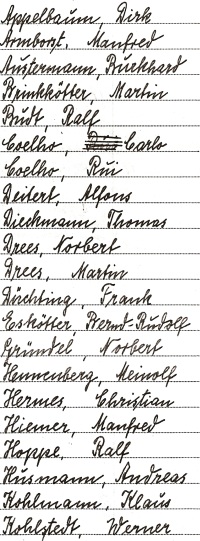 Appelbaum, Dirk
Armborst, Manfred
Austermann, Burkhard
Brinkkötter, Martin
Budt, Ralf
Coelho, Carlo
Coelho, Rui
Deitert, Alfons
Dieckmann, Thomas
Drees, Norbert
Drees, Martin
Düchting, Frank
Eskötter, Bernd-Rudolf
Gründel, Norbert
Hennenberg, Meinolf
Hermes, Christian
Hiemer, Manfred
Hoppe, Ralf
Husmann, Andreas
Kohlmann, Klaus
Kohlstedt, Werner